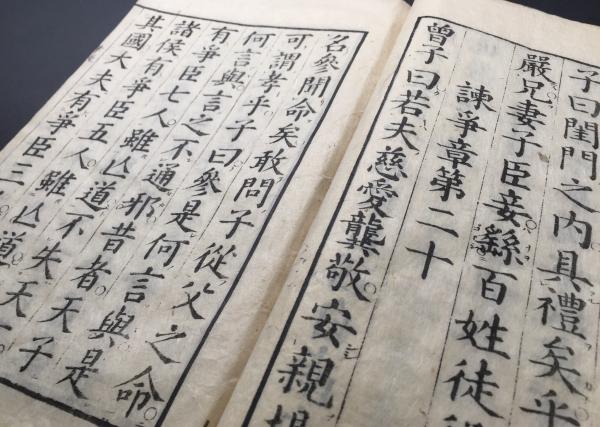 子曰閨門之内具禮矣乎
嚴兄妻子臣妾繇百姓徒
諫爭章第二十
曾子曰若夫慈愛龔敬安親
名參聞命矣敢問子從父之命
可謂孝乎子曰參是何言與是
何言與言之不通邪昔者天子
有爭臣七人雖亡道不失天
諸侯有爭臣五人雖亡道
其國大夫有爭臣三人